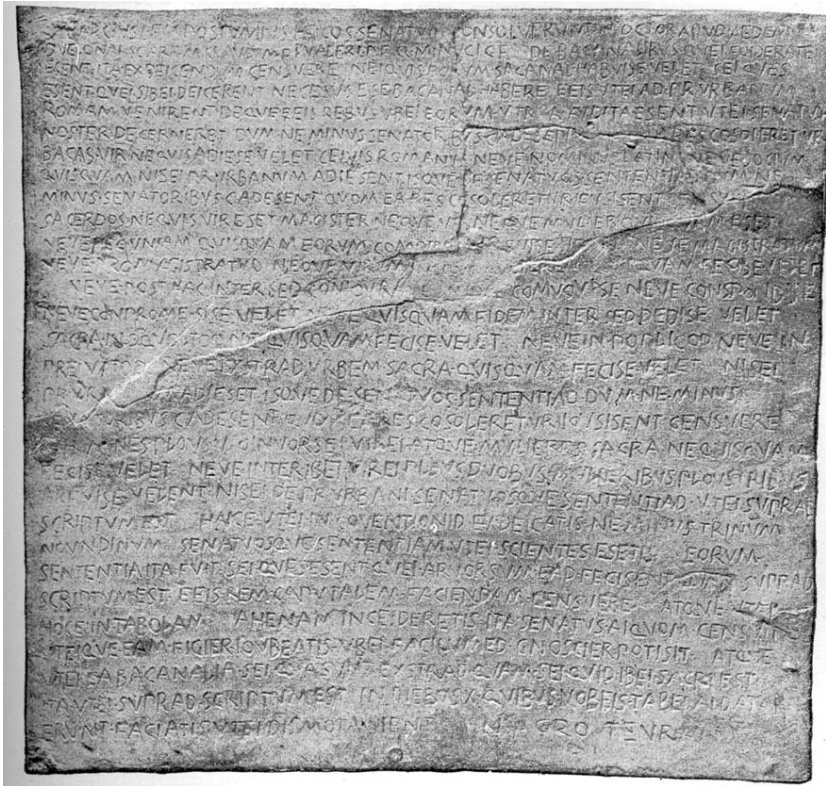 POSTVMIVS COS SENATVM CONSOLVERVNT N OCTOB APVD AEDEM
DVELONAI SC ARF M CLAVDI M F L VALERI P F Q MINVCI C F DE BACANALIBVS QVEI FOIDERATEI
ESENT ITA EXDEICENDVM CENSVERE NEIQVIS EORVM SACANAL HABVISE VELET SEI QVES
ESENT QVEI SIBEI DEICERENT NECESVS ESE BACANAL HABERE EEIS VTEI AD PR VRBANVM
ROMAM VENIRENT DEQVE EEIS REBVS VBEI EORVM VTR A AVDITA ESENT VTEI SENATVS
NOSTER DECERNERET DVM NE MINVS SENATORBVS C ADESENT RES COSOLERETVR
BACAS VIR NEQVIS ADIESE VELET CEIVIS ROMANVS NEVE NOMINVS LATINI NEVE SOCIVM
QVISQVAM NISEI PR VRBANVM ADIESENT ISQVE DE SENATVOS SENTENTIAD DVM NE
MINVS SENATORIBVS C ADESENT QVOM EA RES COSOLERETVR IOVSISENT
SACERDOS NEQVIS VIR ESET MAGISTER NEQVE VIR NEQVE MVLIER ESET
NEVE PECVNIAM QVISQVAM EORVM NEVE MAGISTRATVM
NEVE PRO MAGISTRATVD NEQVE VIRVM QVIQVAM FECISE VELET
NEVE POST HAC INTER SED CONIOVRASE NEVE COMVOVISE NEVE CONSPONDISE
NEVE CONPROMESISE VELET NEVE QVISQVAM FIDEM INTER SED DEDISE VELET
SACRA IN OQVOLTOD NE QVISQVAM FECISE VELET NEVE IN POPLICOD NEVE IN
PREIVATOD NEVE EXSTRAD VRBEM SACRA QVISQVAM FECISE VELET NISEI
PR VRBANVM ADIESET ISQVE DE SENATVOS SENTENTIAD DVM NE MINVS
SENATORIBVS C ADESENT QVOM EA RES COSOLERETVR IOVSISENT CENSVERE
HOMINES PLOVS V OINVORSEI VIREI ATQVE MVLIERES SACRA NE QVISQVAM
FECISE VELET NEVE INTER IBEI VIREI PLOVS DVOBVS MVLIERIBVS PLOVS TRIBVS
ARFVISE VELENT NISEI DE PR VRBANI SENATVOSQVE SENTENTIAD VTEI SVPRAD
SCRIPTVM EST HAICE VTEI IN COVENTIONID EXDEICATIS NE MINVS TRINVM
NOVNDINVM SENATVOSQVE SENTENTIAM VTEI SCIENTES ESETIS EORVM
SENTENTIA ITA FVIT SEI QVES ESENT QVEI ARVORSVM EAD FECISENT QVAM SVPRAD
SCRIPTVM EST EEIS REM CAPVTALEM FACIENDAM CENSVERE ATQVE VTEI
HOCE IN TABOLAM AHENAM INCEIDERETIS ITA SENATVS AIQVOM CENSVIT
VTEIQVE EAM FIGIER IOVBEATIS VBEI FACILVMED GNOSCIER POTISIT ATQVE
VTEI EA BACANALIA SEI QVA SVNT EXSTRAD QVAM SEI QVID IBEI SACRI EST
ITA VTEI SVPRAD SCRIPTVM EST IN DIEBVS X QVIBVS VOBEIS TABELAI DATAI
ERVNT FACIATIS VTEI DISMOTA SIENT IN AGRO TEVRANO